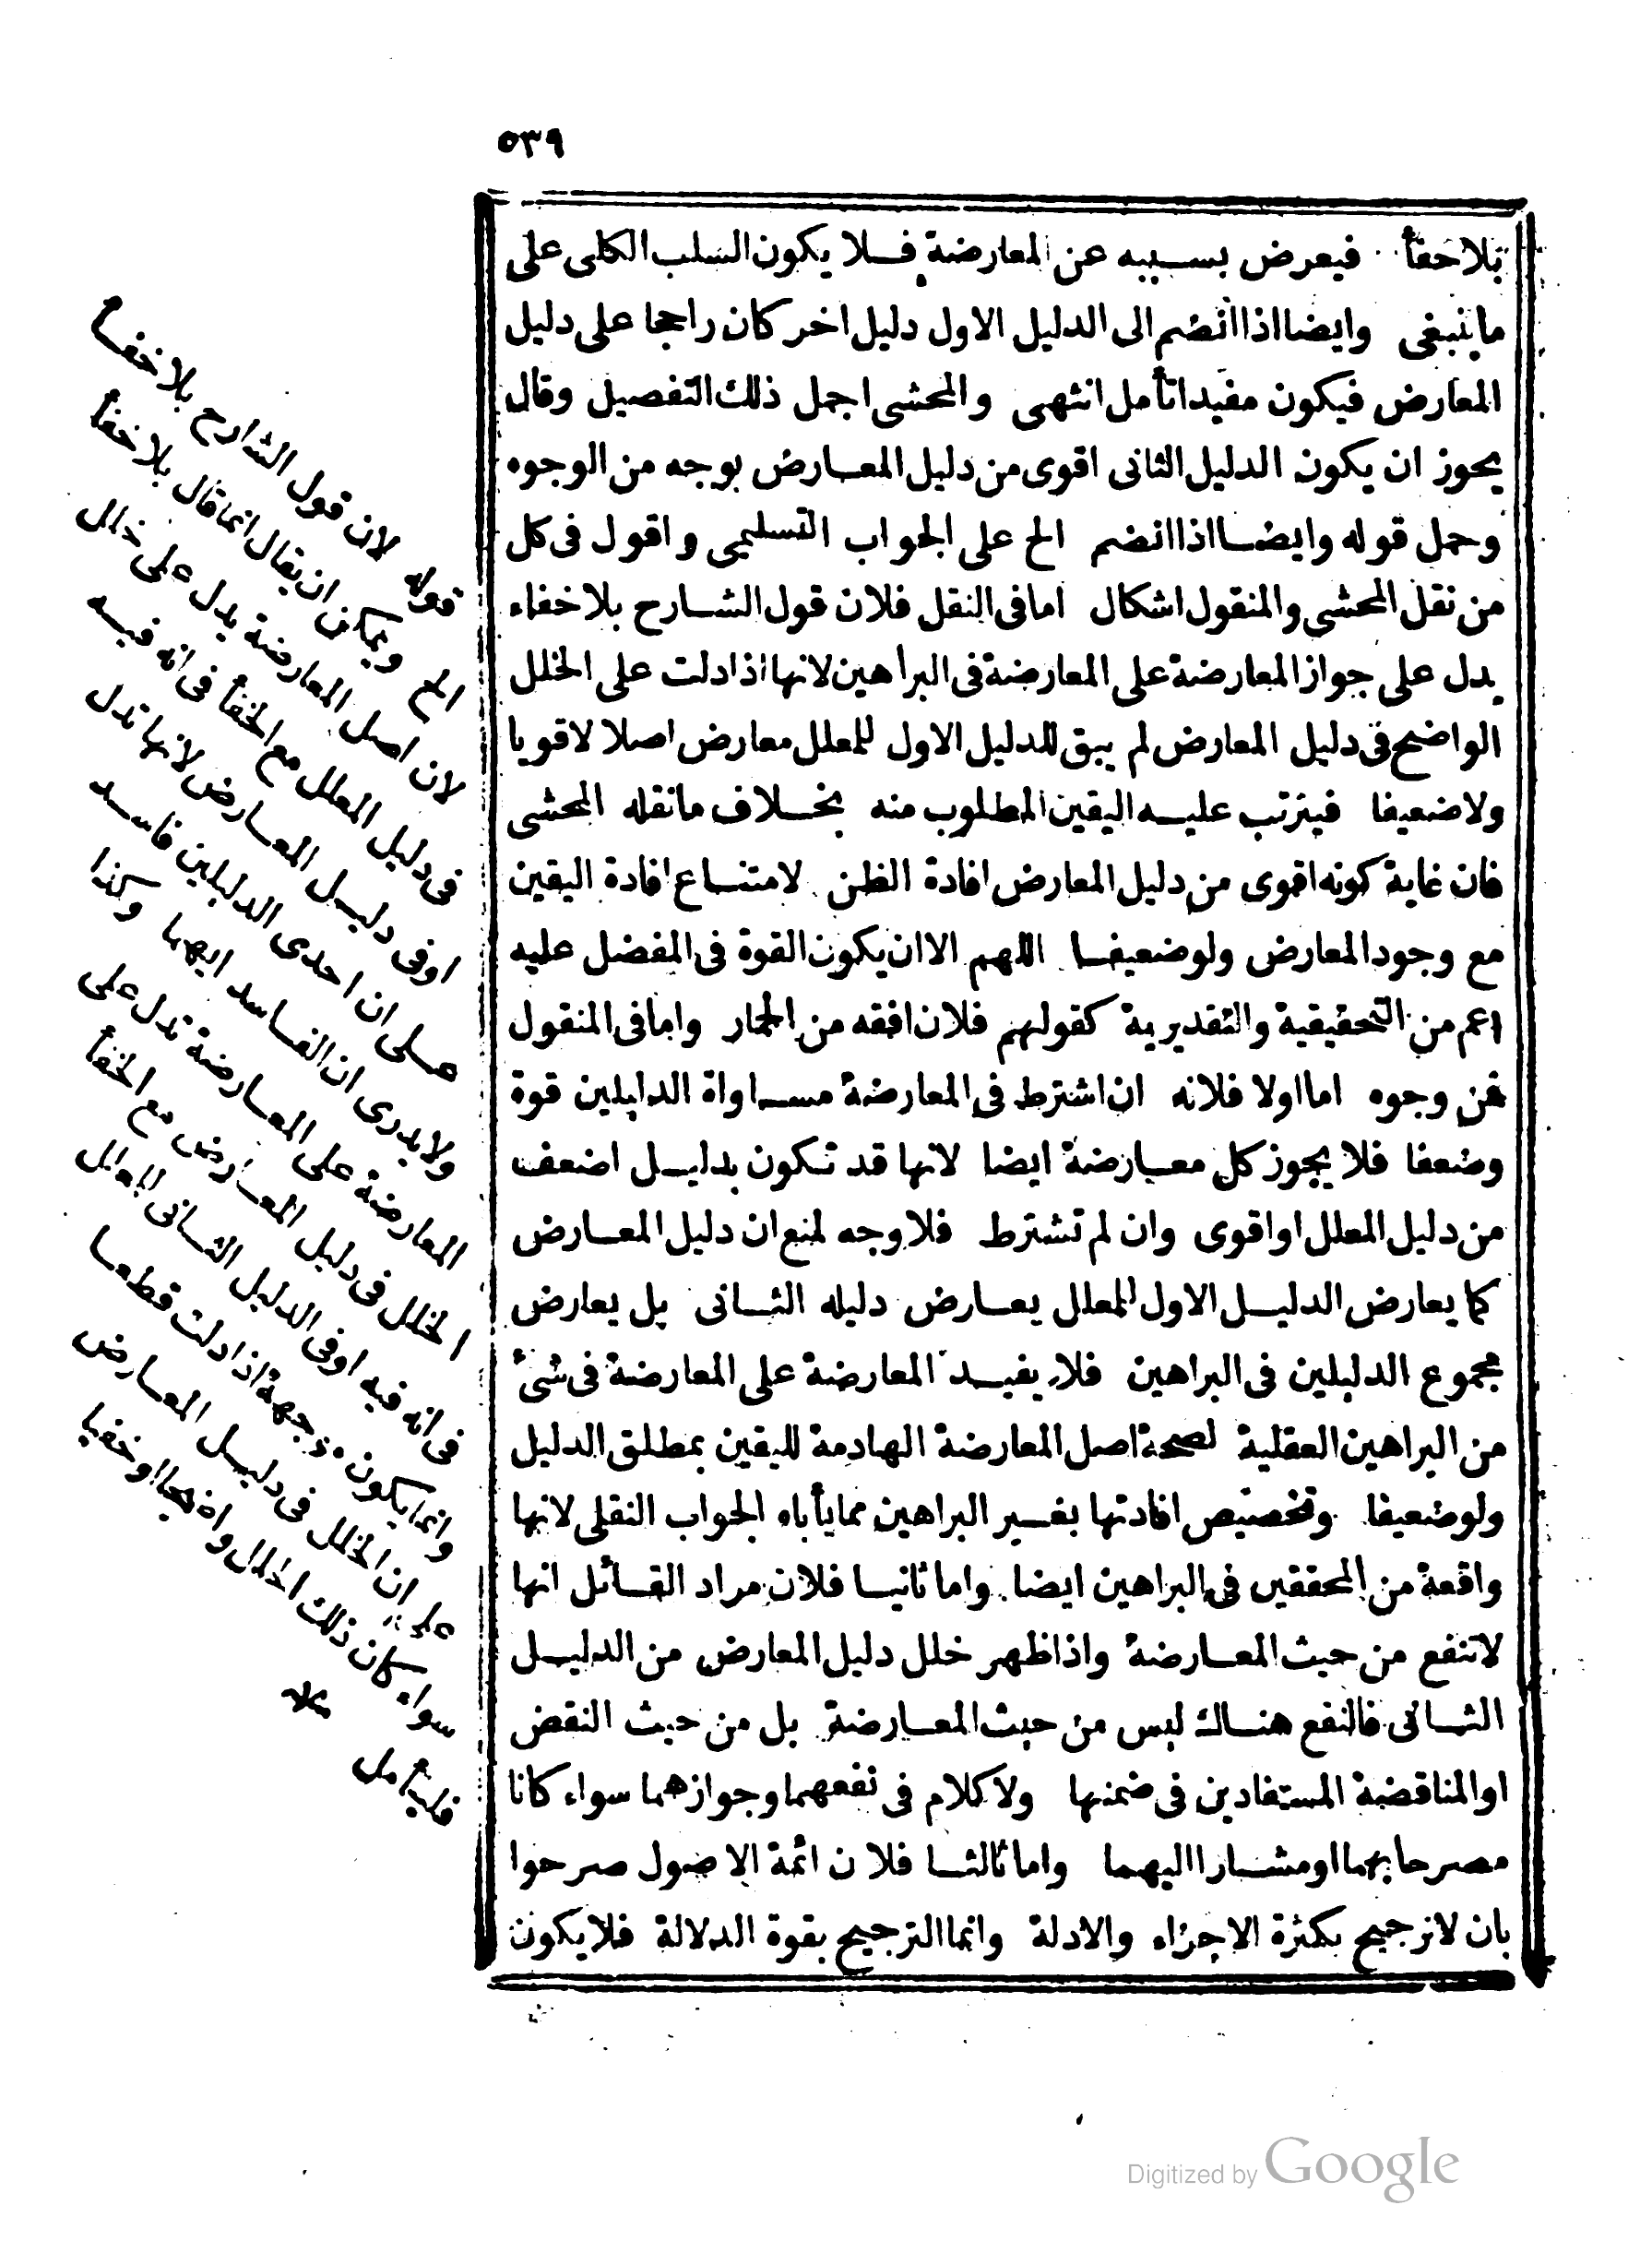 ٥٣٩
بلاخفأ فيعرض بسببه عن المعارضة فلا يكون السلب الكلى على
ماينبغى وايضا اذا انضم الى الدليل الاول دليل اخر كان راجحا على دليل
المعارض فيكون مفيدا تأمل انتهى والمحشى اجمل ذلك التفصيل وقال
يجوز ان يكون الدليل الثانى اقوى من دليل المعارض بوجه من الوجوه
وحمل قوله وايضا اذا انضم الخ على الجواب التسليمى واقول فى كل
من نقل المحشى والمنقول اشكال اما فى النقل فلان قول الشارح بلاخفاء
يدل على جواز المعارضة على المعارضة فى البراهين لانها اذا دلت على الخلل
الواضح فى دليل المعارض لم يبق للدليل الاول للمعلل معارض اصلا لا قويا
ولا ضعيفا فيترتب عليه اليقين المطلوب منه بخلاف مانقله المحشى
فان غاية كونه اقوى من دليل المعارض افادة الظن لامتناع افادة اليقين
مع وجود المعارض ولو ضعيفا اللهم الا ان يكون القوة فى المفضل عليه
اعم من التحقيقية والتقديرية كقولهم فلان افقه من الحمار واما فى المنقول
فمن وجوه اما اولا فلانه ان اشترط فى المعارضة مساواة الدليلين قوة
وضعفا فلا يجوز كل معارضة ايضا لانها قد تكون بدليل اضعف
من دليل المعلل او اقوى وان لم تشترط فلا وجه لمنع ان دليل المعارض
كما يعارض الدليل الاول للمعلل يعارض دليله الثانى بل يعارض
مجموع الدليلين فى البراهين فلا يفيد المعارضة على المعارضة فى شئ
من البراهين العقلية لصحة اصل المعارضة الهادمة لليقين بمطلق الدليل
ولو ضعيفا وتخصيص افادتها بغير البراهين مما يأباه الجواب النقلى لانها
واقعة من المحققين فى البراهين ايضا واما ثانيا فلان مراد القائل انها
لاتنفع من حيث المعارضة واذا ظهر خلل دليل المعارض من الدليل
الثانى فالنفع هناك ليس من حيث المعارضة بل من حيث النقض
او المناقضة المستفادين فى ضمنها ولا كلام فى نفعهما وجوازهما سواء كانا
مصرحا بهما او مشارا اليهما واما ثالثا فلان ائمة الاصول صرحوا
بان لا ترجيح بكثرة الاجزاء والادلة وانما الترجيح بقوة الدلالة فلا يكون
قوله لان قول الشارح بلاخفاء
الخ ويمكن ان يقال انما قال بلاخفأ
لان اصل المعارضة يدل على خلل
فى دليل المعلل مع الخفأ فى انه فيه
او فى دليل المعارض لانها تدل
على ان احدى الدليلين فاسد
ولا يدرى ان الفاسد ايهما وكذا
المعارضة على المعارضة تدل على
الخلل فى دليل المعارض مع الخفأ
فى انه فيه او فى الدليل الثانى للمعلل
وانما يكون موجهة اذا دلت قطعا
على ان الخلل فى دليل المعارض
سواء كان ذلك الخلل واضحا او خفيا
فليتأمل
منه
Digitized by Google